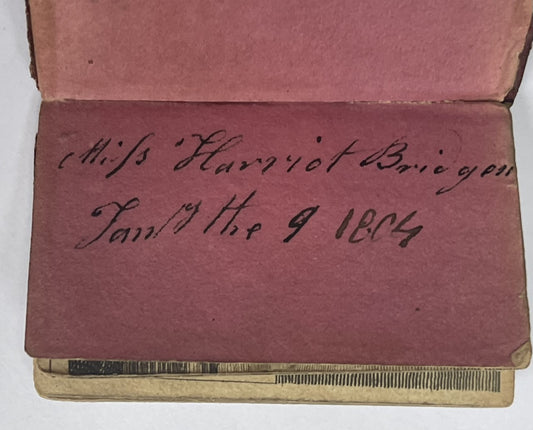 Miſs Harriot Bridgen
Jan^y the 9 1804